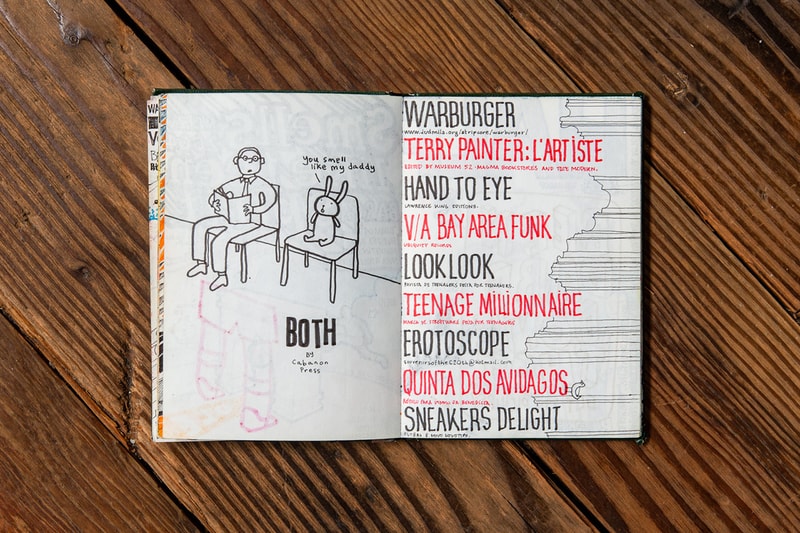 you smell
like my daddy
BOTH
By
Cabanon
Press
WARBURGER
www.ludmila.org/stripcore/warburger/
TERRY PAINTER: L'ARTISTE
EDITED BY MUSEUM 52. MAGMA BOOKSTORES AND TATE MODERN.
HAND TO EYE
LAWRENCE KING EDITIONS.
V/A BAY AREA FUNK
UBIQUITY RECORDS
LOOKLOOK
REVISTA DE TEENAGERS FEITA POR TEENAGERS.
TEENAGE MILLIONNAIRE
MARCA DE STREETWARE FEITA POR TEENAGERS
EROTOSCOPE
QUINTA DOS AVIDAGOS
SNEAKERS DELIGHT